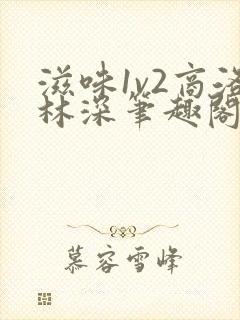 滋味1v2高洛
林深筆趣閣
慕容雪峰